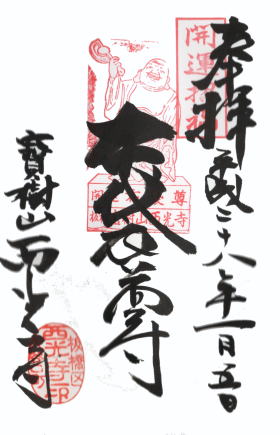 奉拝
平成二十八年一月五日
開運招福
布袋尊
寶樹山西光寺
板橋区
西光寺
印